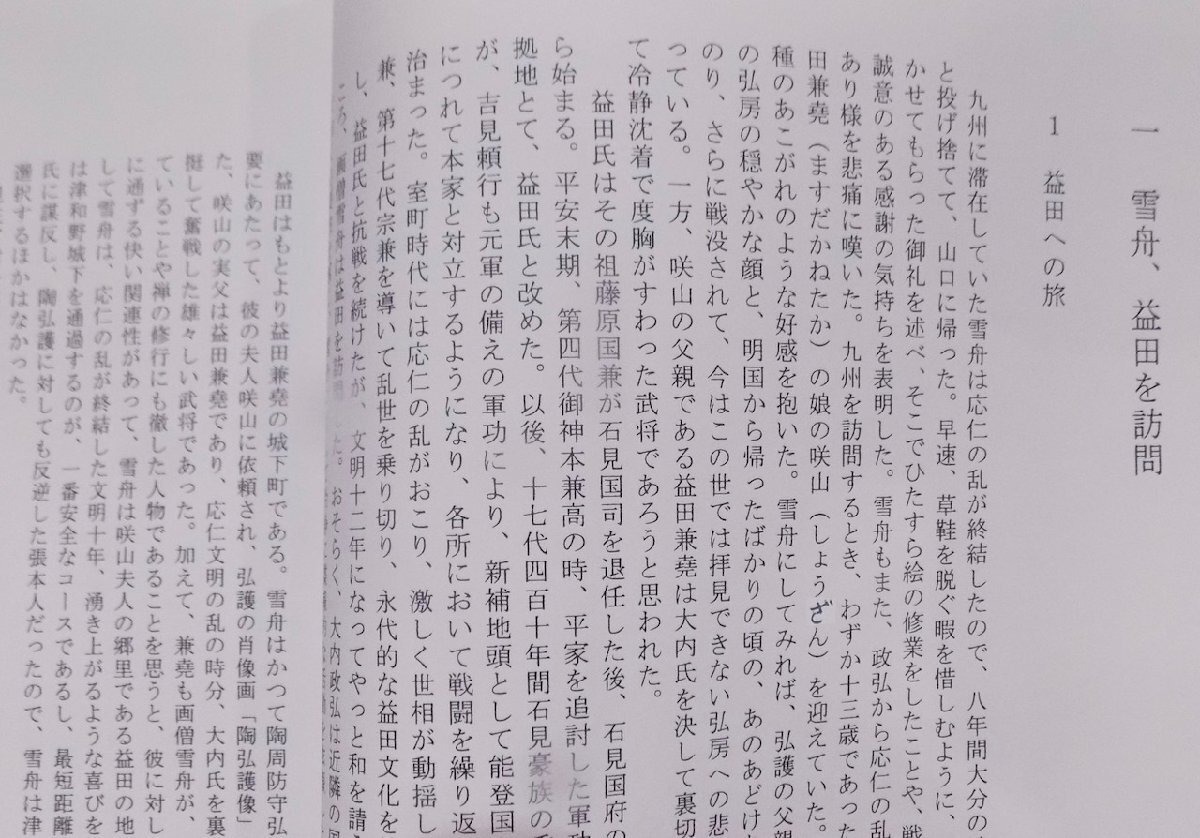 一　雪舟、益田を訪問
1　益田への旅
九州に滞在していた雪舟は応仁の乱が終結したので、八年間大分の
と投げ捨てて、山口に帰った。早速、草鞋を脱ぐ暇を惜しむように、
かせてもらった御礼を述べ、そこでひたすら絵の修業をしたことや、戦
誠意のある感謝の気持ちを表明した。雪舟もまた、政弘から応仁の乱
あり様を悲痛に嘆いた。九州を訪問するとき、わずか十三歳であった
田兼堯（ますだかねたか）の娘の咲山（しょうざん）を迎えていた。
種のあこがれのような好感を抱いた。雪舟にしてみれば、弘護の父親
の弘房の穏やかな顔と、明国から帰ったばかりの頃の、あのあどけ
のり、さらに戦没されて、今はこの世では拝見できない弘房への悲
っている。一方、咲山の父親である益田兼堯は大内氏を決して裏切
て冷静沈着で度胸がすわった武将であろうと思われた。
益田氏はその祖藤原国兼が石見国司を退任した後、石見国府の
ら始まる。平安末期、第四代御神本兼高の時、平家を追討した軍功
拠地とて、益田氏と改めた。以後、十七代四百十年間石見豪族の
が、吉見頼行も元軍の備えの軍功により、新補地頭として能登国
につれて本家と対立するようになり、各所において戦闘を繰り返
治まった。室町時代には応仁の乱がおこり、激しく世相が動揺し
兼、第十七代宗兼を導いて乱世を乗り切り、永代的な益田文化を
し、益田氏と抗戦を続けたが、文明十二年になってやっと和を請
ころ、画僧雪舟は益田を訪問した。おそらく、大内政弘は近隣の
益田はもとより益田兼堯の城下町である。雪舟はかつて陶周防守弘
要にあたって、彼の夫人咲山に依頼され、弘護の肖像画「陶弘護像」
た、咲山の実父は益田兼堯であり、応仁文明の乱の時分、大内氏を裏
挺して奮戦した雄々しい武将であった。加えて、兼堯も画僧雪舟が、
ていることや禅の修行にも徹した人物であることを思うと、彼に対し
に通ずる快い関連性があって、雪舟は咲山夫人の郷里である益田の地
して雪舟は、応仁の乱が終結した文明十年、湧き上がるような喜びを
は津和野城下を通過するのが、一番安全なコースであるし、最短距離
氏に謀反し、陶弘護に対しても反逆した張本人だったので、雪舟は津
選択するほかはなかった。